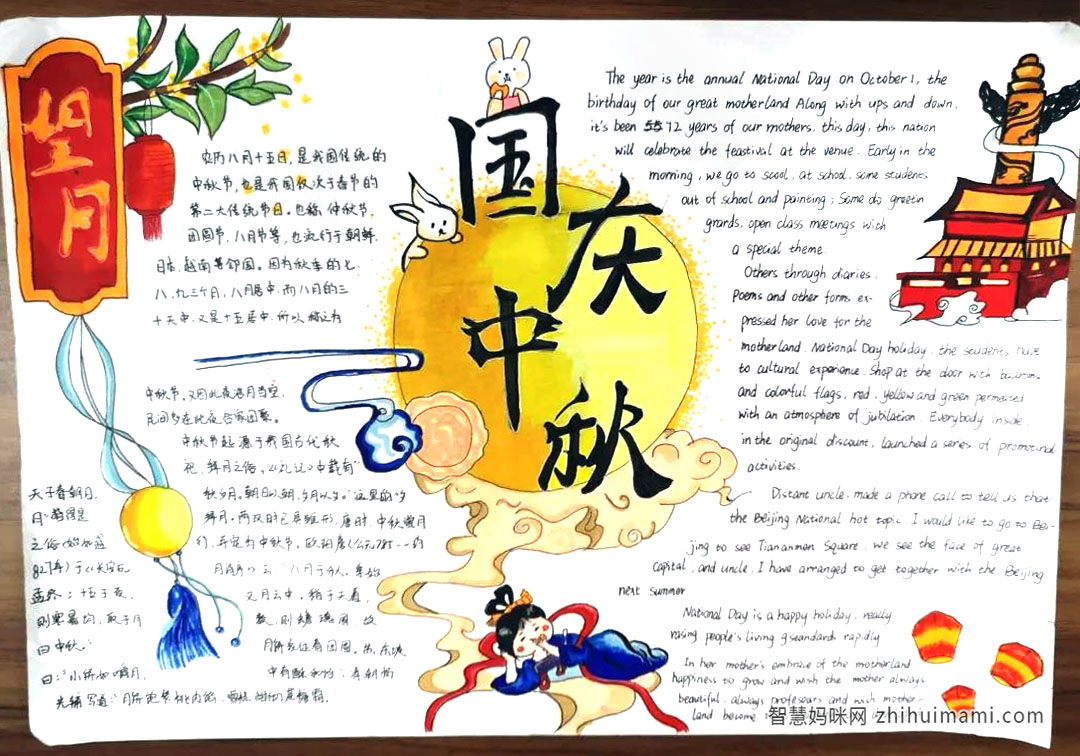 望月
国庆
中秋
农历八月十五日,是我国传统的
中秋节,也是我国仅次于春节的
第二大传统节日。也称仲秋节,
团圆节、八月节等,也流行于朝鲜、
日本、越南等邻国。因为秋季的七、
八、九三个月,八月居中,而八月的三
十天中,又是十五居中,所以称之为
中秋节。又因此夜浩月当空,
民间多在此夜合家团聚。
中秋节起源于我国古代秋
祀、拜月之俗。《礼记》中载有
天子春朝日,
秋夕月。朝日以朝,夕月以夕。"这里的"夕
月"
拜月。两汉时已具雏形,唐时,中秋赏月
之俗
行,并定为中秋节。欧阳詹(公元
827年)于《长安玩
月
云:"八月于秋,季始
孟终;十五于夜,
又月云中。稽于天道,
则寒暑均,取于月
数,则蟾魂圆,故
曰中秋。"
The year is the annual National Day on October 1, the
birthday of our great motherland Along with ups and down,
it's been 72 years of our mothers. this day, this nation
will celebrate the feastival at the venue. Early in the
morning, we go to scool, at school, some students
out of school and painting; Some do greetin
grards, open class meetings with
a special theme.
Others through diaries,
Poems and other form, ex-
pressed her love for the
motherland. National Day holiday, the students have
to cultural experience. Shop at the door with
and colorful flags, red, yellow and green permeated
with an atmosphere of jubilation. Everybody inside,
in the original discount, launched a series of promotional
activities.
Distant uncle, made a phone call to tell us that
the Beijing National hot topic. I would like to go to Bei-
jing to see Tiananmen Square, we see the face of great
capital, and uncle, I have arranged to get together with the Beijing
next summer
National Day is a happy holiday, really
rasing people's living gseandards rapidly
In her mother's embrace of the motherland
happiness to grow and wish the mother always
beautiful, always profesoars and wish mother-
land become
智慧妈咪网 zhihuimami.com